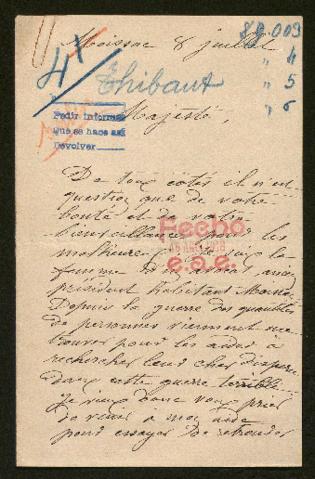 Moissac 8 juillet
82.009
" 4
" 5
" 6
Thibaut
Majesté
Pedir informes
que se hace así
Devolver
De tous cotés il n'est
question que de votre
bonté et de votre
bienveillance pour les
malheureux Je suis la
femme d'un
président habitant Moissac
Depuis la guerre des quantités
de personnes viennent me
trouver pour les aider à
rechercher leurs chers disparus
dans cette guerre terrible
Je veux donc vous prier
de venir à mon aide
pour essayer de retrouver
Fecho
e.a.e.